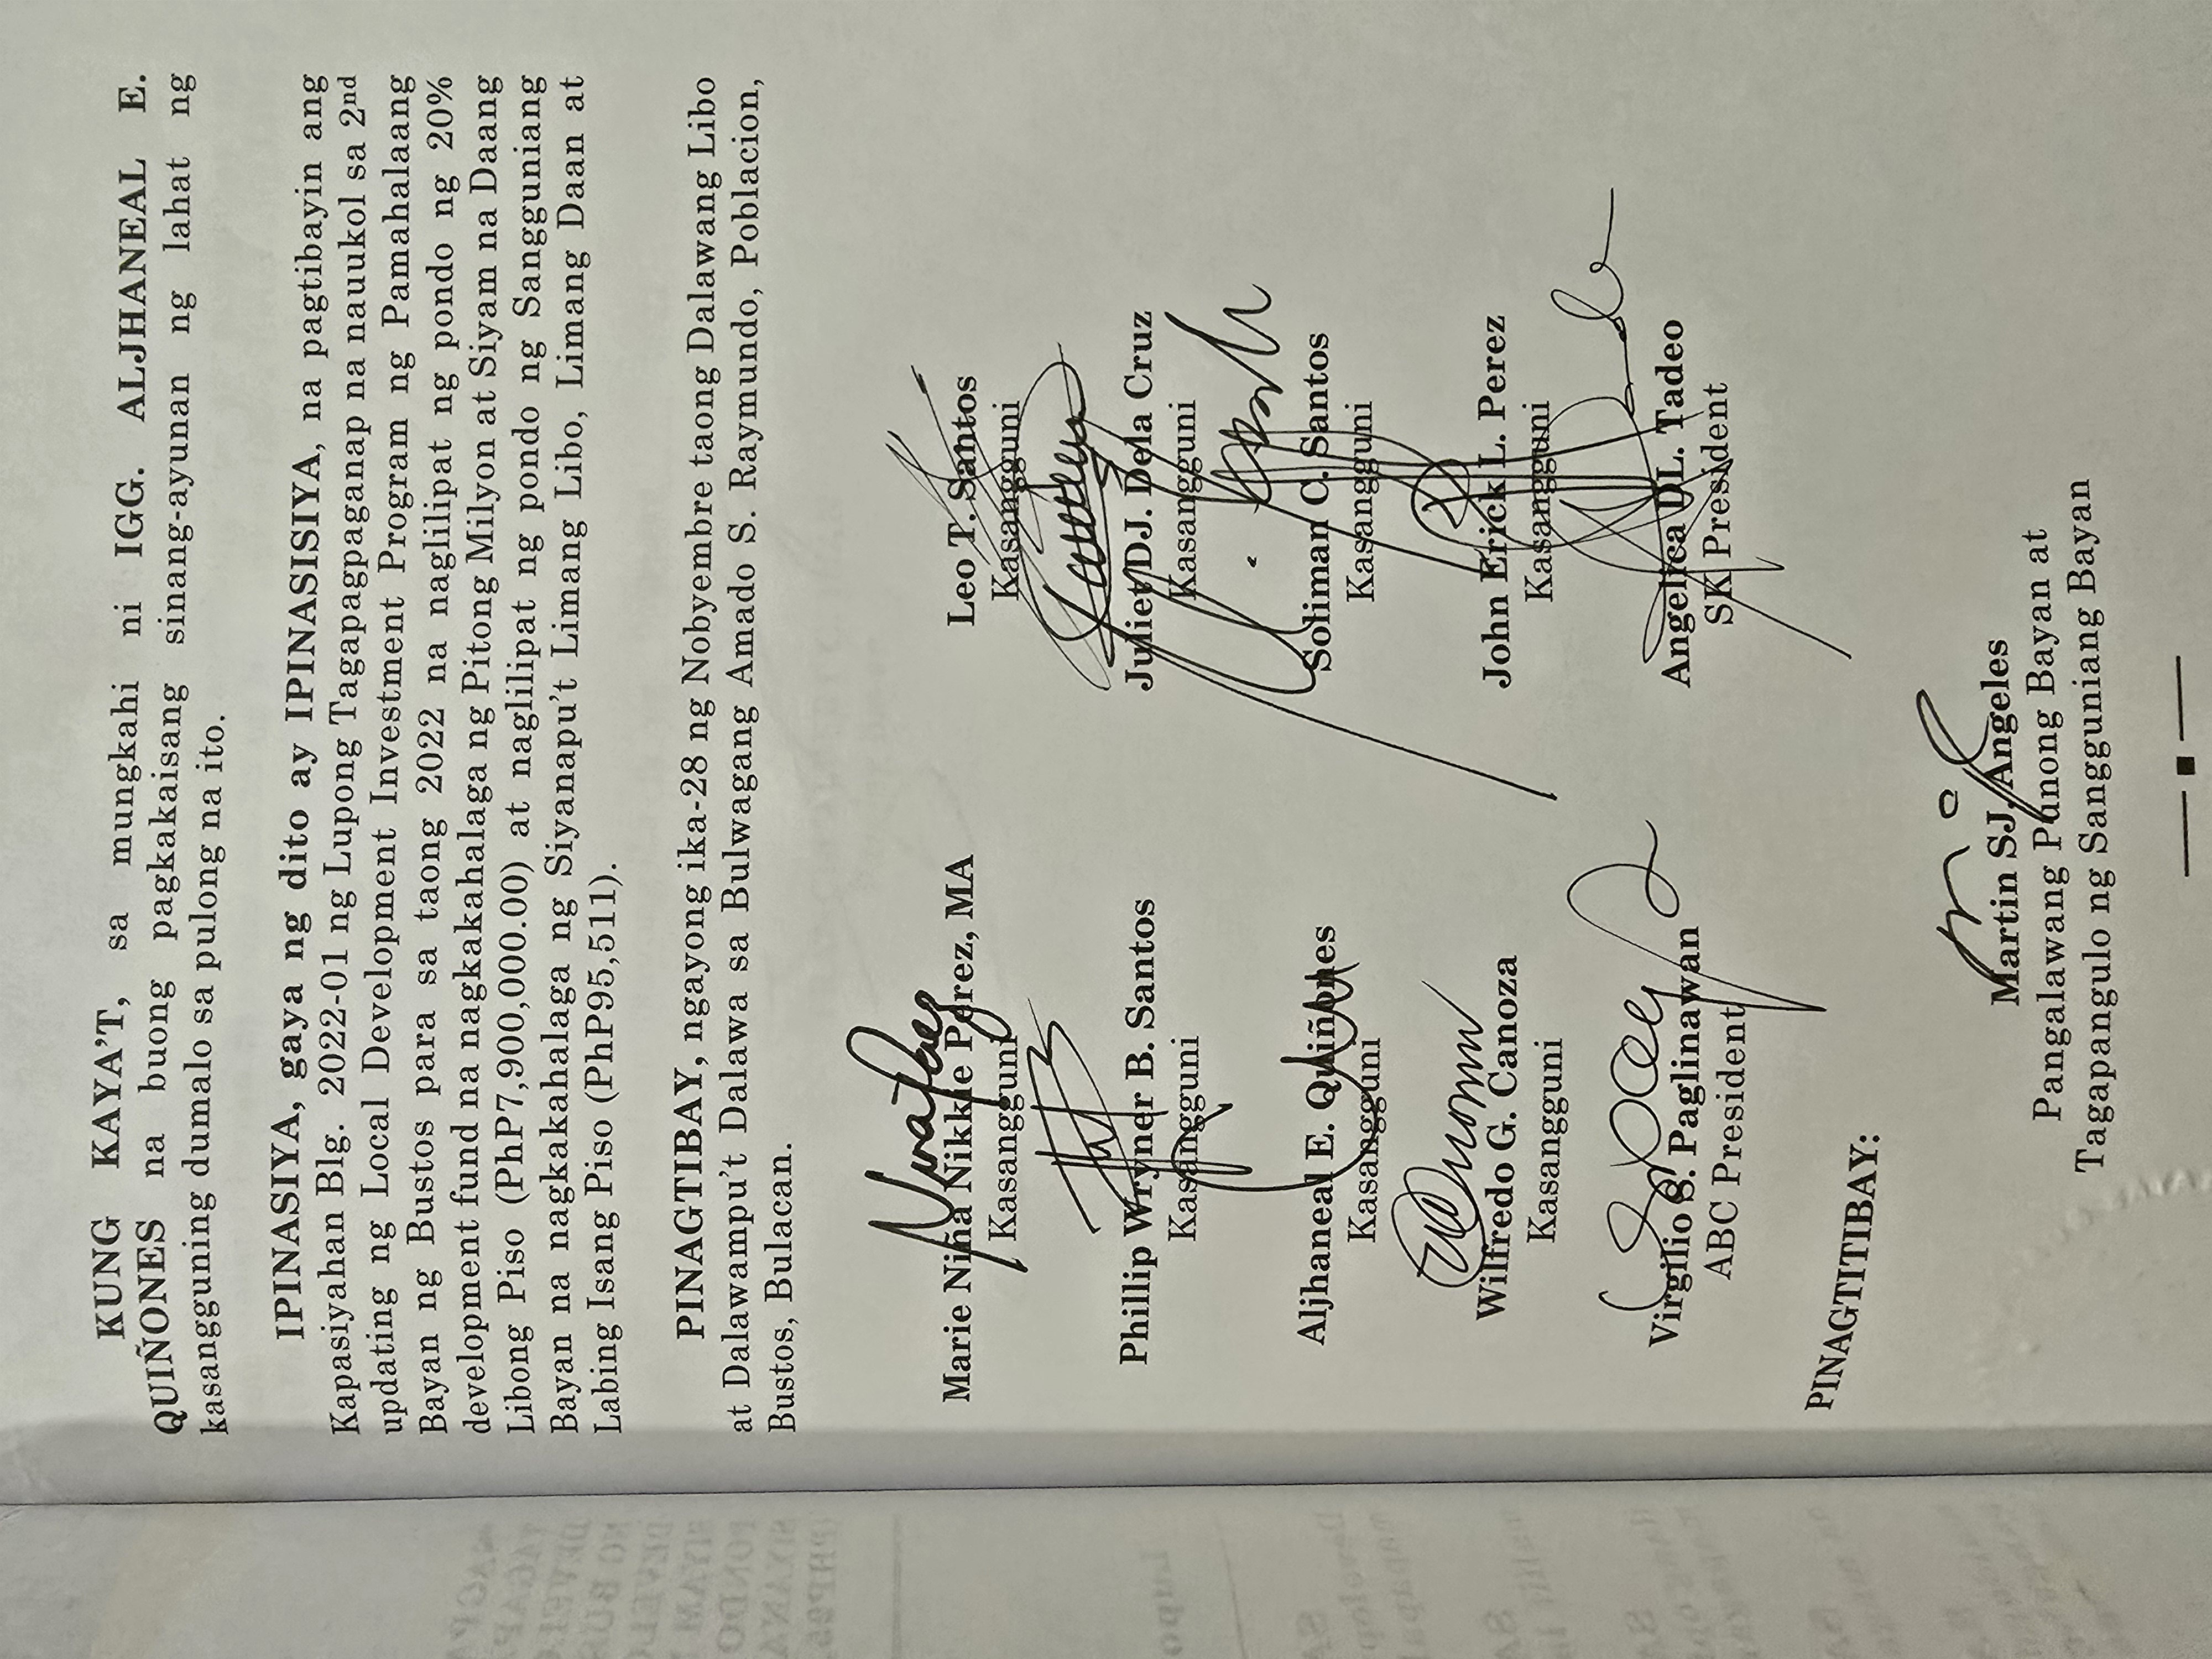 KUNG KAYA'T, sa mungkahi ni IGG. ALJHANEAL E.
QUIÑONES na buong pagkakaisang sinang-ayunan ng lahat ng
kasangguning dumalo sa pulong na ito.
IPINASIYA, gaya ng dito ay IPINASISIYA, na pagtibayin ang
Kapasiyahan Blg. 2022-01 ng Lupong Tagapagpaganap na nauukol sa 2nd
updating ng Local Development Investment Program ng Pamahalaang
Bayan ng Bustos para sa taong 2022 na naglilipat ng pondo ng 20%
development fund na nagkakahalaga ng Pitong Milyon at Siyam na Daang
Libong Piso (PhP7,900,000.00) at naglilipat ng pondo ng Sangguniang
Bayan na nagkakahalaga ng Siyanapu't Limang Libo, Limang Daan at
Labing Isang Piso (PhP95,511).
PINAGTIBAY, ngayong ika-28 ng Nobyembre taong Dalawang Libo
at Dalawampu't Dalawa sa Bulwagang Amado S. Raymundo, Poblacion,
Bustos, Bulacan.
Marie Niña Nikkie Perez, MA
Kasangguni
Leo T. Santos
Kasangguni
Phillip Wryner B. Santos
Kasangguni
Juliet DJ. Dela Cruz
Kasangguni
Aljhaneal E. Quiñones
Kasangguni
Soliman C. Santos
Kasangguni
Wilfredo G. Canoza
Kasangguni
John Erick L. Perez
Kasangguni
Virgilio S. Paglinawan
ABC President
Angelica DL. Tadeo
SK President
PINAGTITIBAY:
Martin SJ. Angeles
Pangalawang Punong Bayan at
Tagapangulo ng Sangguniang Bayan